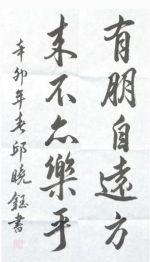 有朋自遠方
來不亦樂乎
辛卯年春邱曉鈺書